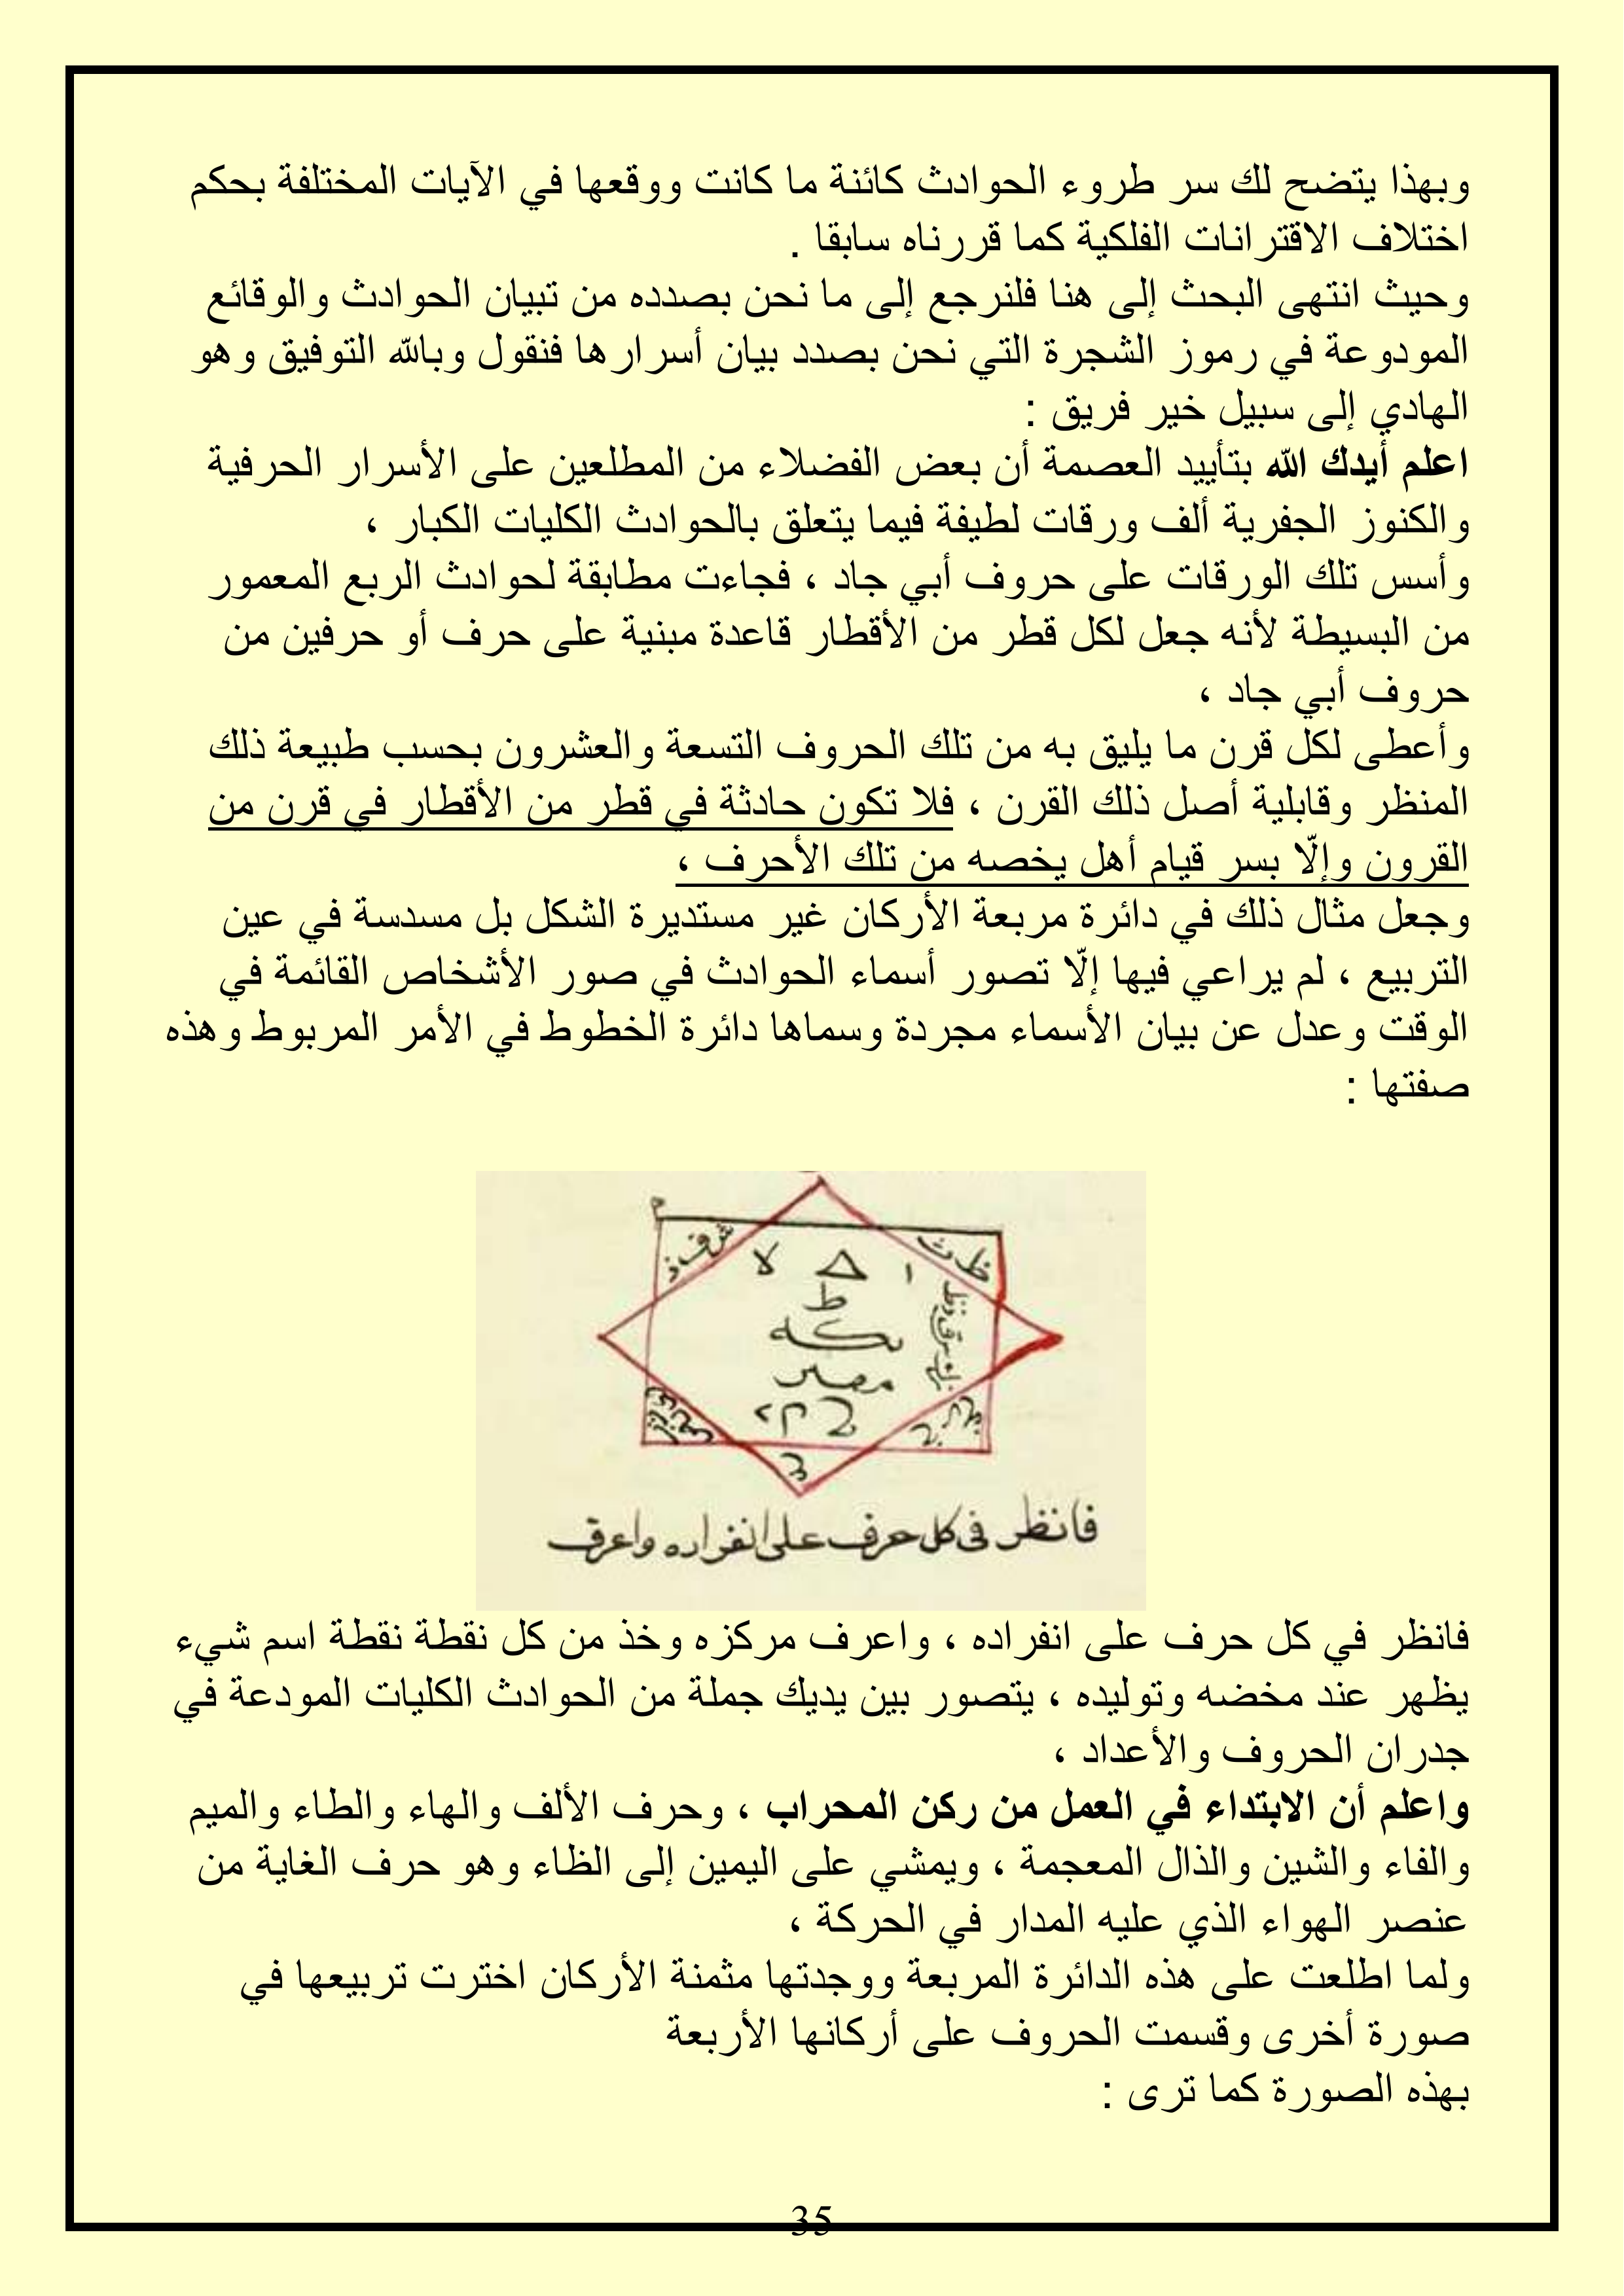 وبهذا يتضح لك سر طروء الحوادث كائنة ما كانت ووقعها في الآيات المختلفة بحكم
اختلاف الاقترانات الفلكية كما قررناه سابقا .
وحيث انتهى البحث إلى هنا فلنرجع إلى ما نحن بصدده من تبيان الحوادث والوقائع
المودوعة في رموز الشجرة التي نحن بصدد بيان أسرارها فنقول وبالله التوفيق وهو
الهادي إلى سبيل خير فريق :
اعلم أيدك الله بتأييد العصمة أن بعض الفضلاء من المطلعين على الأسرار الحرفية
والكنوز الجفرية ألف ورقات لطيفة فيما يتعلق بالحوادث الكليات الكبار ،
وأسس تلك الورقات على حروف أبي جاد ، فجاءت مطابقة لحوادث الربع المعمور
من البسيطة لأنه جعل لكل قطر من الأقطار قاعدة مبنية على حرف أو حرفين من
حروف أبي جاد ،
وأعطى لكل قرن ما يليق به من تلك الحروف التسعة والعشرون بحسب طبيعة ذلك
المنظر وقابلية أصل ذلك القرن ، فلا تكون حادثة في قطر من الأقطار في قرن من
القرون وإلّا بسر قيام أهل يخصه من تلك الأحرف ،
وجعل مثال ذلك في دائرة مربعة الأركان غير مستديرة الشكل بل مسدسة في عين
التربيع ، لم يراعي فيها إلّا تصور أسماء الحوادث في صور الأشخاص القائمة في
الوقت وعدل عن بيان الأسماء مجردة وسماها دائرة الخطوط في الأمر المربوط وهذه
صفتها :
ظ ث
ا
لا
ط
مكه
مصر
ح م د
فانظر في كل حرف على انفراده واعرف
فانظر في كل حرف على انفراده ، واعرف مركزه وخذ من كل نقطة نقطة اسم شيء
يظهر عند مخضه وتوليده ، يتصور بين يديك جملة من الحوادث الكليات المودعة في
جدران الحروف والأعداد ،
واعلم أن الابتداء في العمل من ركن المحراب ، وحرف الألف والهاء والطاء والميم
والفاء والشين والذال المعجمة ، ويمشي على اليمين إلى الظاء وهو حرف الغاية من
عنصر الهواء الذي عليه المدار في الحركة ،
ولما اطلعت على هذه الدائرة المربعة ووجدتها مثمنة الأركان اخترت تربيعها في
صورة أخرى وقسمت الحروف على أركانها الأربعة
بهذه الصورة كما ترى :
35